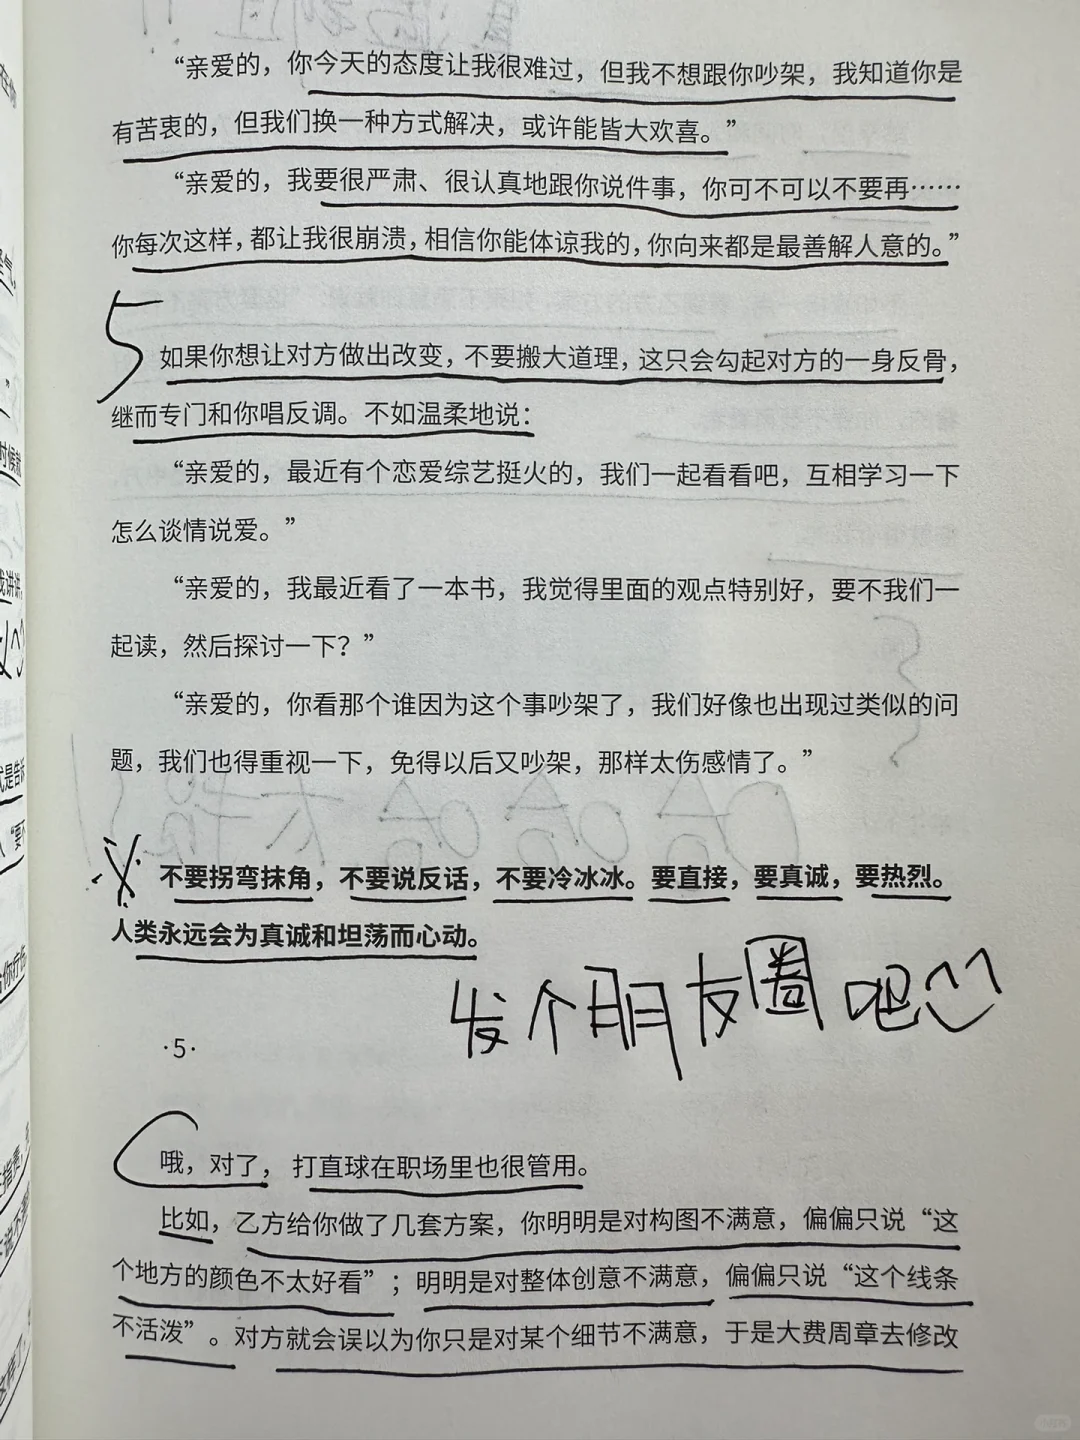 “亲爱的，你今天的态度让我很难过，但我不想跟你吵架，我知道你是
有苦衷的，但我们换一种方式解决，或许能皆大欢喜。”
“亲爱的，我要很严肃、很认真地跟你说件事，你可不可以不要再……
你每次这样，都让我很崩溃，相信你能体谅我的，你向来都是最善解人意的。”
5
如果你想让对方做出改变，不要搬大道理，这只会勾起对方的一身反骨，
继而专门和你唱反调。不如温柔地说：
“亲爱的，最近有个恋爱综艺挺火的，我们一起看看吧，互相学习一下
怎么谈情说爱。”
“亲爱的，我最近看了一本书，我觉得里面的观点特别好，要不我们一
起读，然后探讨一下？”
“亲爱的，你看那个谁因为这个事吵架了，我们好像也出现过类似的问
题，我们也得重视一下，免得以后又吵架，那样太伤感情了。”
不要拐弯抹角，不要说反话，不要冷冰冰。要直接，要真诚，要热烈。
人类永远会为真诚和坦荡而心动。
发个朋友圈吧
·5·
哦，对了，打直球在职场里也很管用。
比如，乙方给你做了几套方案，你明明是对构图不满意，偏偏只说“这
个地方的颜色不太好看”；明明是对整体创意不满意，偏偏只说“这个线条
不活泼”。对方就会误以为你只是对某个细节不满意，于是大费周章去修改